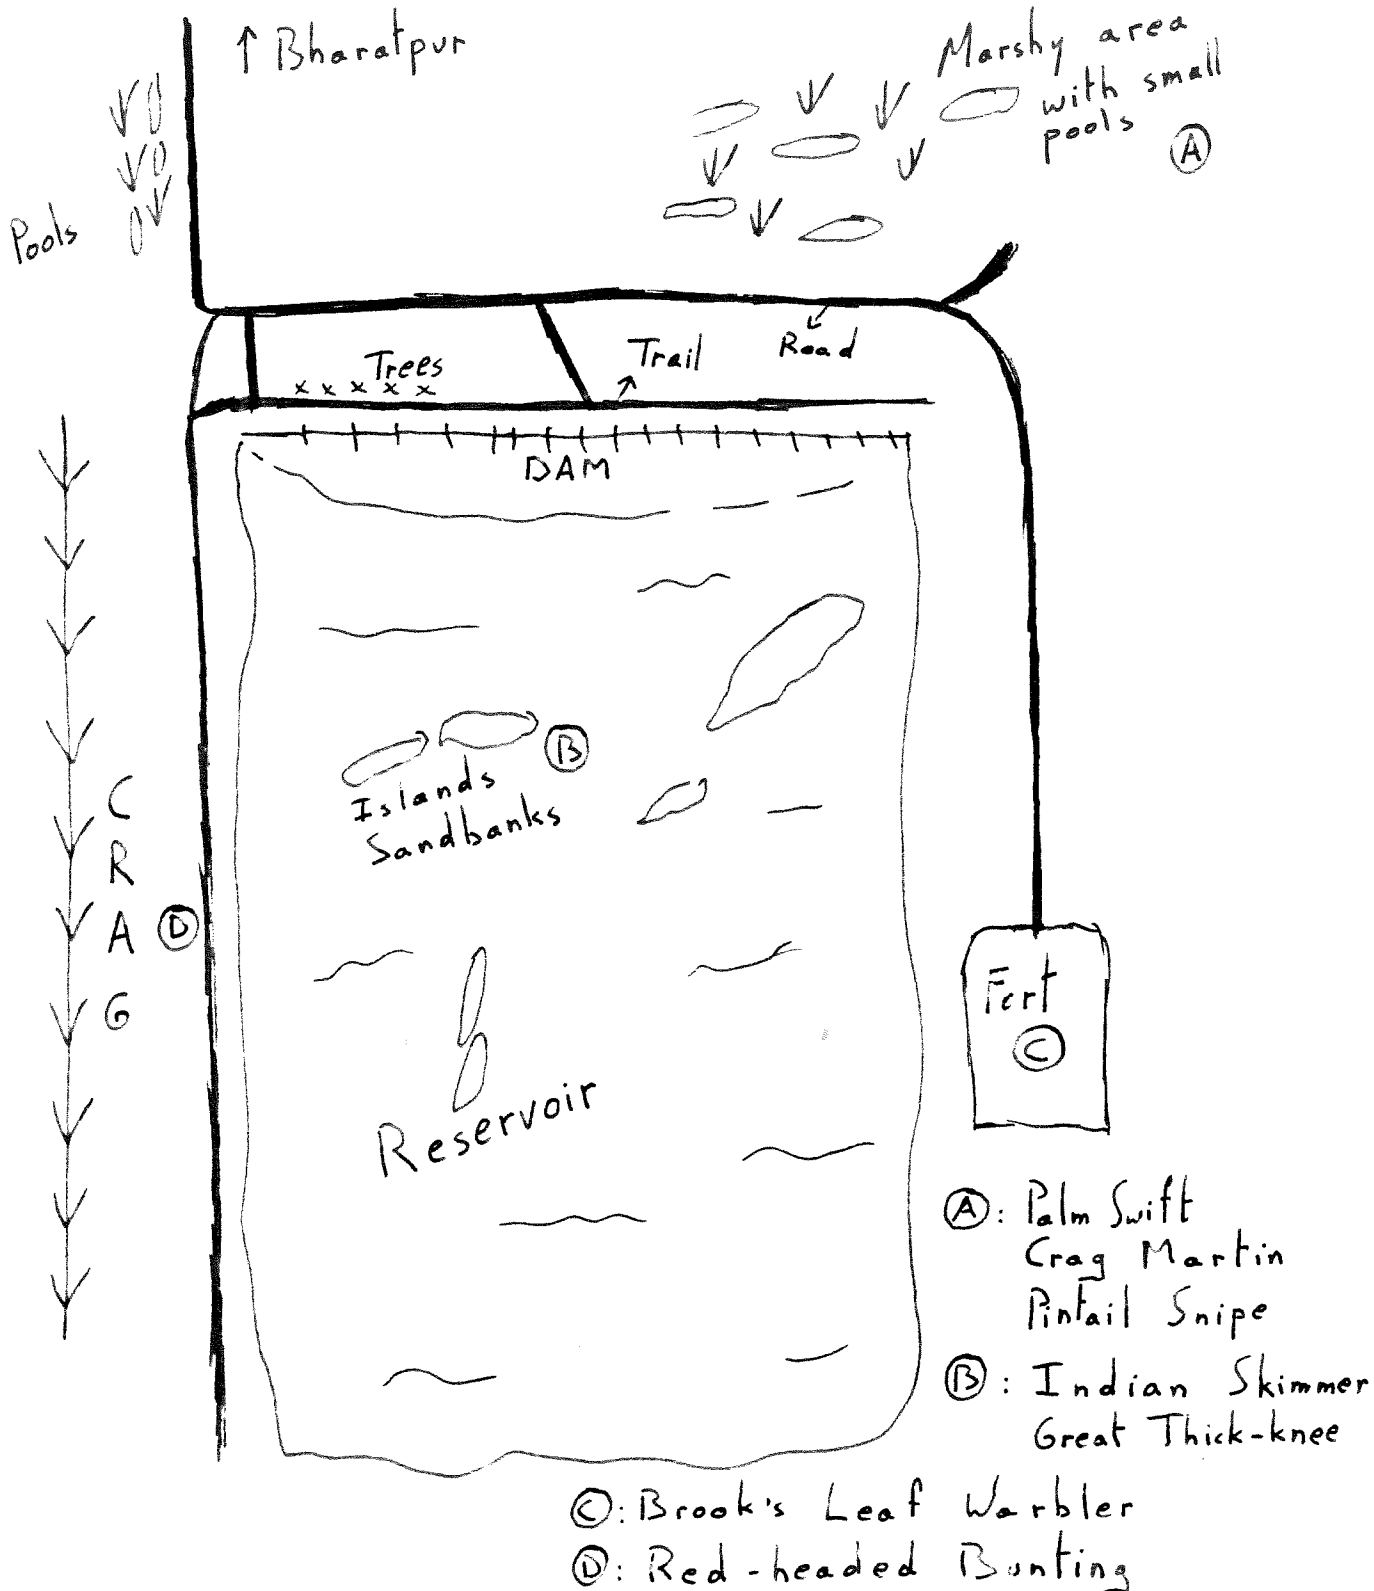 ↑ Bharatpur
Marshy area
with small
pools
A
Pools
Trees
Trail
Road
DAM
B
Islands
Sandbanks
CRAG
D
Fort
C
Reservoir
A: Palm Swift
Crag Martin
Pintail Snipe
B: Indian Skimmer
Great Thick-knee
C: Brook's Leaf Warbler
D: Red-headed Bunting